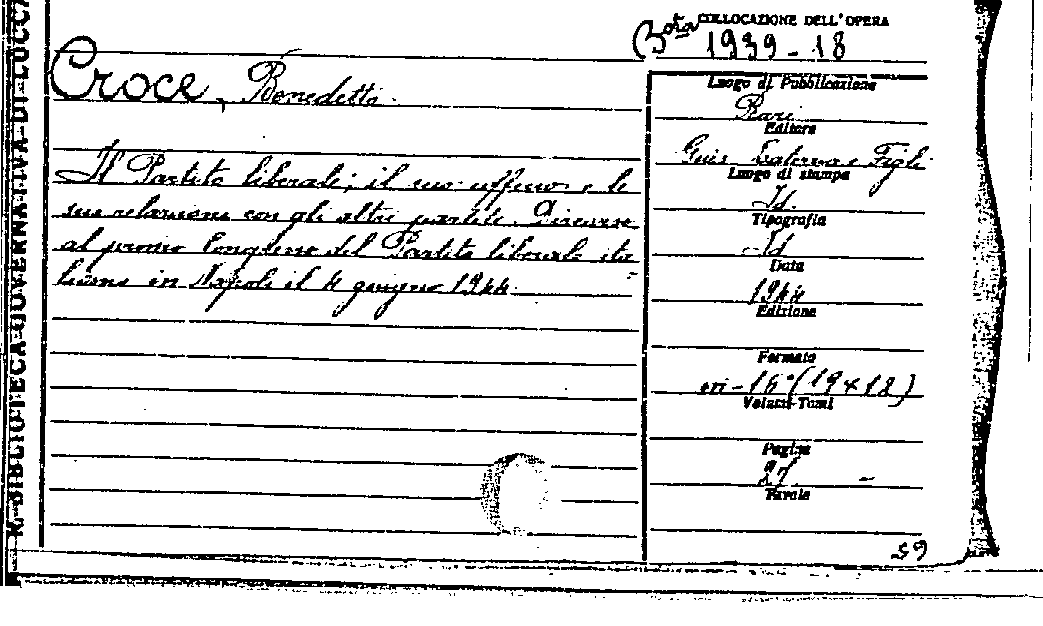 R. BIBLIOTECA GOVERNATIVA DI LUCCA
COLLOCAZIONE DELL'OPERA
Bota 1939-18
Croce, Benedetto.
Il Partito liberale; il suo ufficio e le
sue relazioni con gli altri partiti. Discorso
al primo Congresso del Partito liberale ita
liano in Napoli il 4 giugno 1944.
Luogo di Pubblicazione
Bari
Editore
Gius. Laterza e Figli
Luogo di stampa
Id.
Tipografia
Id
Data
1944
Edizione
Formato
in-16°(19x12)
Volumi-Tomi
Pagine
27 -
Tavole
59